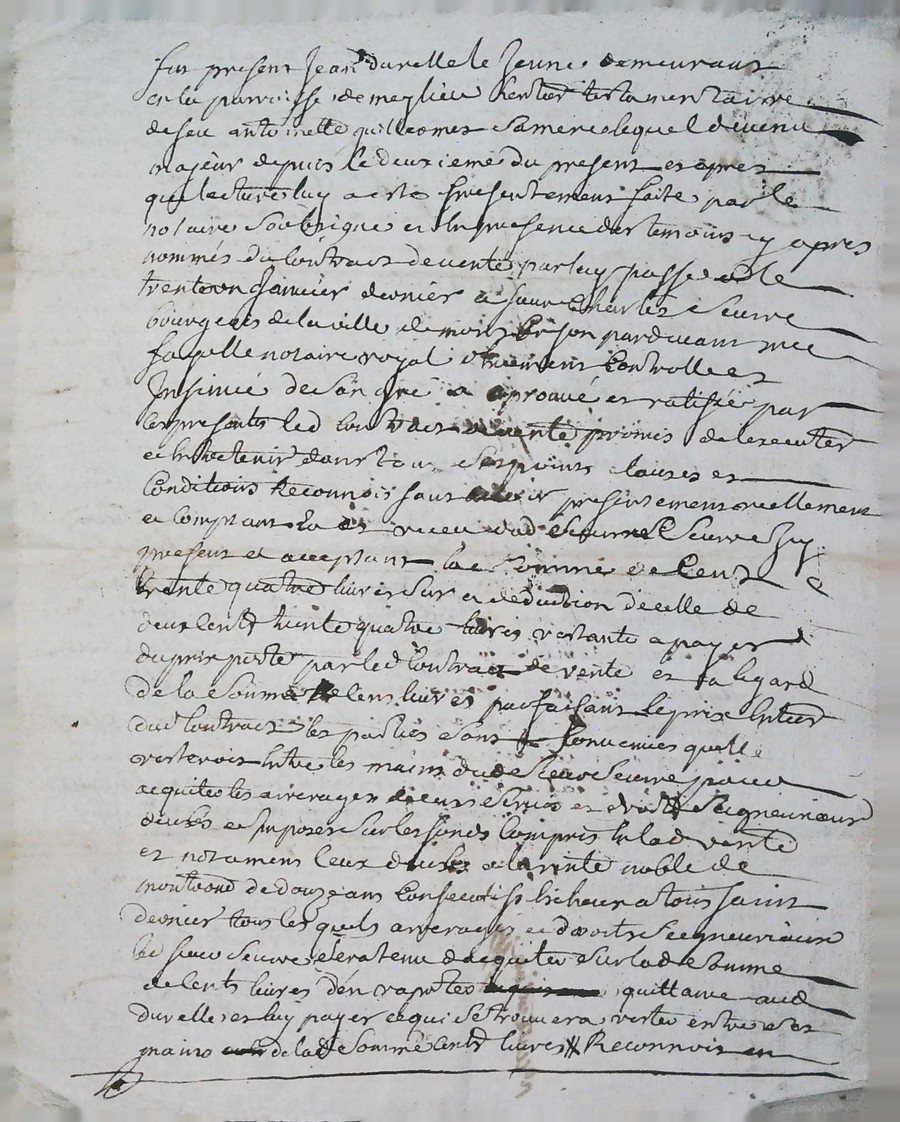 fut present Jean durelle le Jeune demeurant
en la parroisse de meylieu heritier testamentaire
de feu antoinette guilleomet sa mere lequel devenu
majeur depuis le deuxieme du present et apres
que lecture luy a esté presentement faite par le
notaire soubsigné en la presence des temoins cy apres
nommés du Contract de vente par luy passé le
trente un Janvier dernier a sieur Charles Seurre
bourgeois de la ville de montbrison pardevant mee
notaire royal Controlle et
Insinué de son gré a aprouvé et ratifié par
les presentes led Contract de vente promis de lexecuter
et entretenir dans tous ses points clauses et
Conditions Reconnois sant avoir presentement reellement
et comptant eu et receu dud sieur Seurre Icy
present et acceptant la somme de Cent
trente quatre livres sur et deduction de celle de
deux Cent trente quatre livres restante a payer
du prix porté par led Contract de vente et a legard
de la somme de Cent livres parfaisant le prix Entier
dud Contract les parties sont Convenues quelle
resteroit entre les mains dud sieur Seurre pour
acquiter les arrerages de cens servis et droits Seigneuriaux
deubs et Imposés sur les fonds Compris en lad vente
et notament Ceux deubs a la rente noble de
montrond de douze ans Consecutifs Echeus a tous saint
dernier tous lesquels arrerages et droits Seigneuriaux
led sieur Seurre sera tenu dacquiter sur lad somme
de Cents livres den raporter quittance aud
durelle et luy payer ce qui se trouvera rester entre ses
mains de lad somme Cents livres Reconnois en